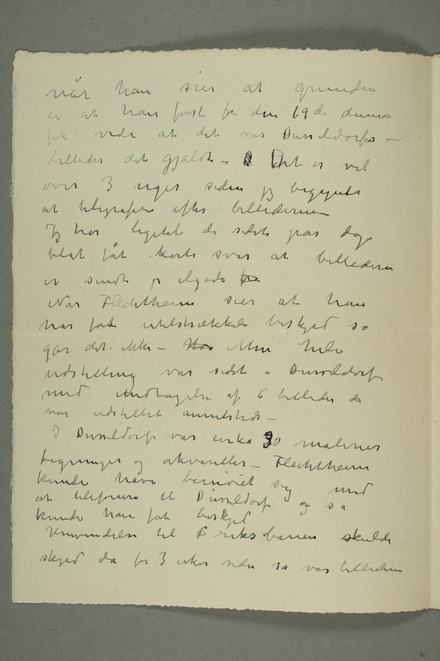 når han sier at grunden
er at han først fra den 19de dennes
fik vide at det var Dusseldorfs –
billeder det gjaldt – Det er vel
over 3 uger siden jeg begynte
at telegrafere efter billederne
Jeg har ligetil de sidste par dage
blot fåt korte svar at billederne
er sendt
Når Flechtheim sier at han
har fåt utilstrækkele beskjed så
går det ikke – Min hele
udstilling var sidst i Dusseldorf
med undtagelse af 6 billeder der
var udstillet annetsteds –
I Dusseldorf var cirka 90 malerier
tegninger og akvareller – Flechtheim
kunde have bemøiet sig med
at telefonere til Dusseldorf og så
kunde han fåt beskjed
Henvendelse til riksbanen skulde
skjed da for 3 uker siden så var billederne